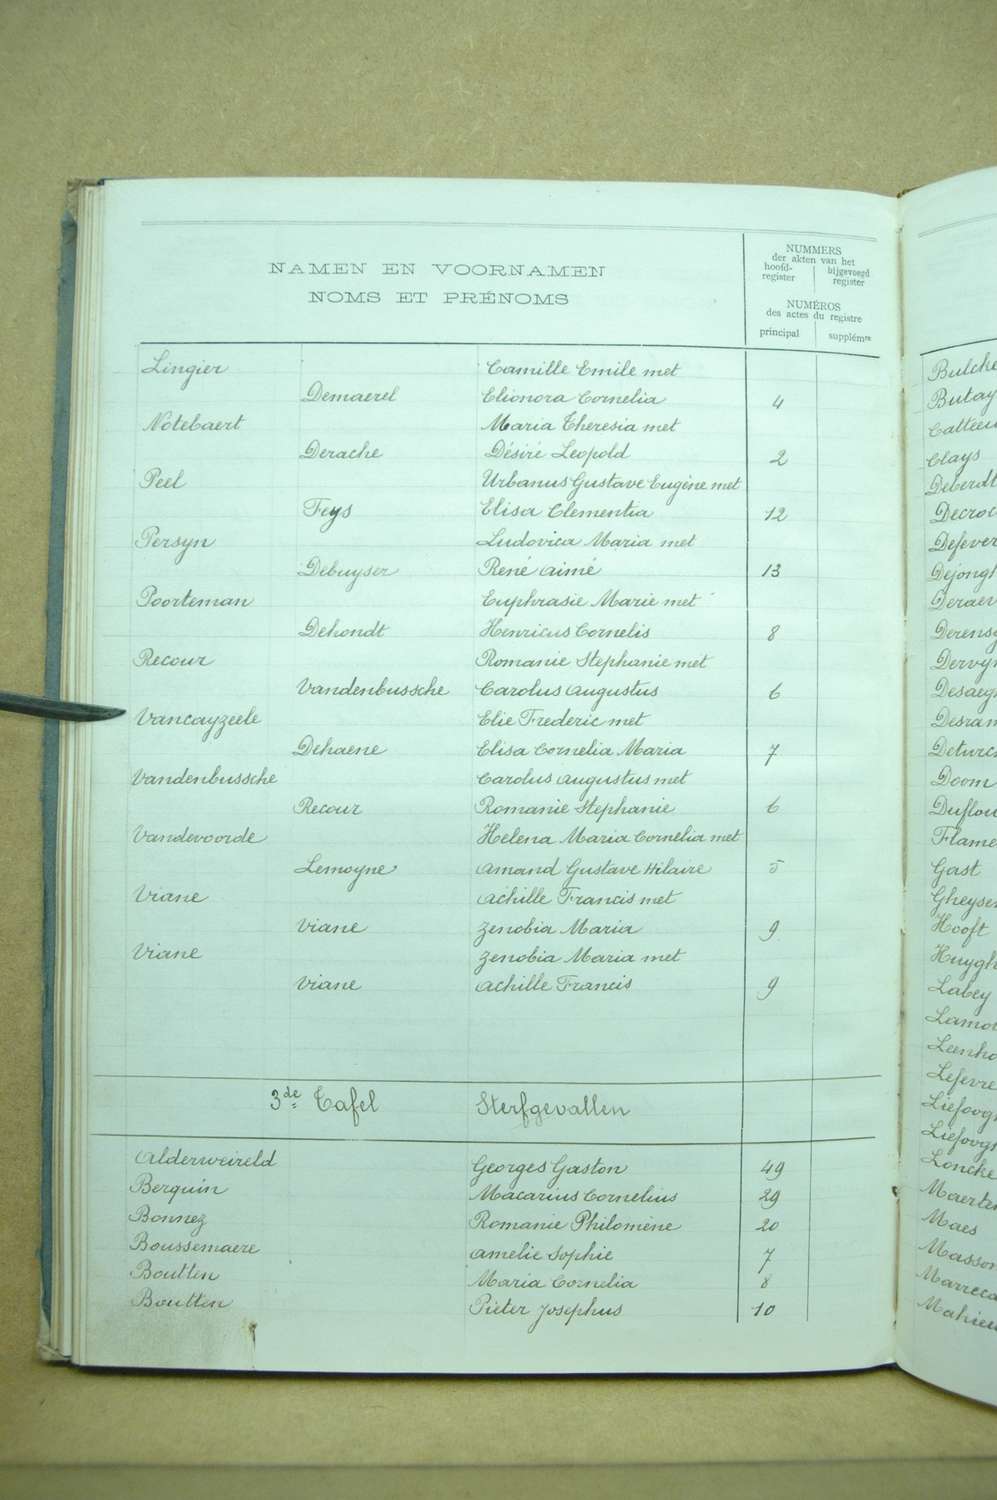 NAMEN EN VOORNAMEN
NOMS ET PRÉNOMS
NUMMERS
der akten van het
hoofd-register
bijgevoegd register
NUMÉROS
des actes du registre
principal supplémre
Lingier Camille Emile met
Demaerel Elionora Cornelia 4
Notebaert Maria Theresia met
Derache Désiré Leopold 2
Peel Urbanus Gustave Eugène met
Feys Elisa Clementia 12
Persyn Ludovica Maria met
Debuyser René Aimé 13
Poorteman Euphrasie Marie met
Dehondt Henricus Cornelis 8
Recour Romanie Stephanie met
Vandenbussche Carolus Augustus 6
Vancayzeele Elie Frederic met
Dehaene Elisa Cornelia Maria 7
Vandenbussche Carolus Augustus met
Recour Romanie Stephanie 6
Vandevoorde Helena Maria Cornelia met
Lemoyne Amand Gustave Hilaire 5
Viane Achille Francis met
Viane Zenobia Maria 9
Viane Zenobia Maria met
Viane Achille Francis 9
3de Tafel Sterfgevallen
Alderweireld Georges Gaston 49
Berquin Macarius Cornelius 29
Bonnez Romanie Philomène 20
Boussemaere Amelie Sophie 7
Boutten Maria Cornelia 8
Boutten Pieter Josephus 10
Bulcke
Butay
Clays
Deberdt
Decroc
Defever
Dejongh
Deraev
Derens
Dervyn
Desaegh
Desram
Deturc
Doom
Duflou
Flame
Gast
Gheyse
Hooft
Huygh
Labey
Lamot
Leenho
Lefevre
Liefoogh
Liefoogh
Loncke
Maerte
Maes
Masson
Marreca
Mahieu